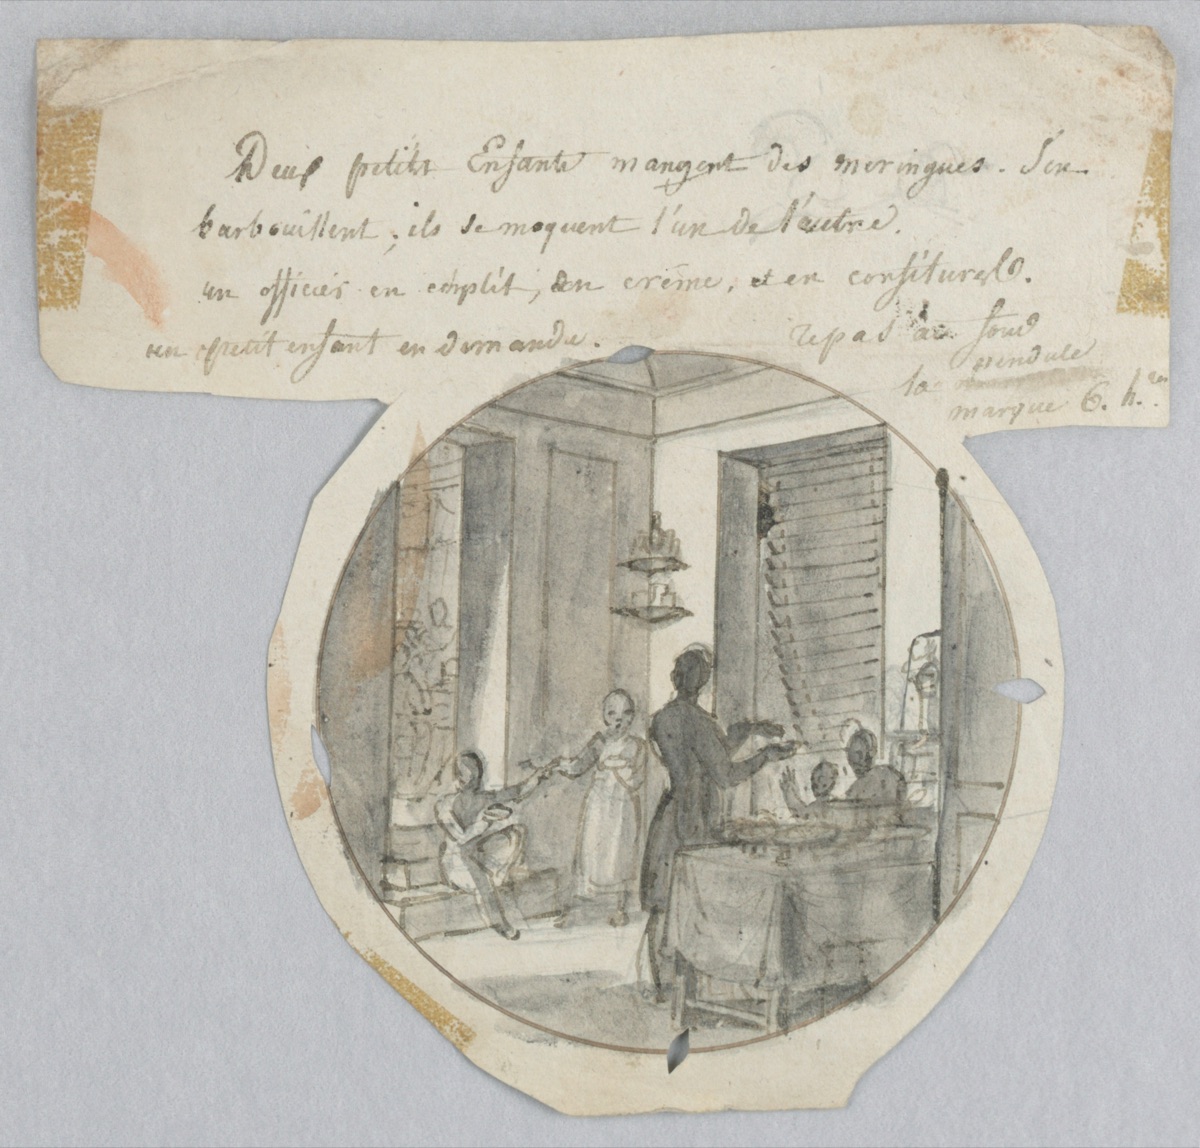 Deux petits Enfants mangent des meringues. S'en
barbouillent, ils se moquent l'un de l'autre.
un officier en emplit, en crème, et en confitures.
un petit enfant en demande.
repas au fond
la pendule
marque 6. h.res